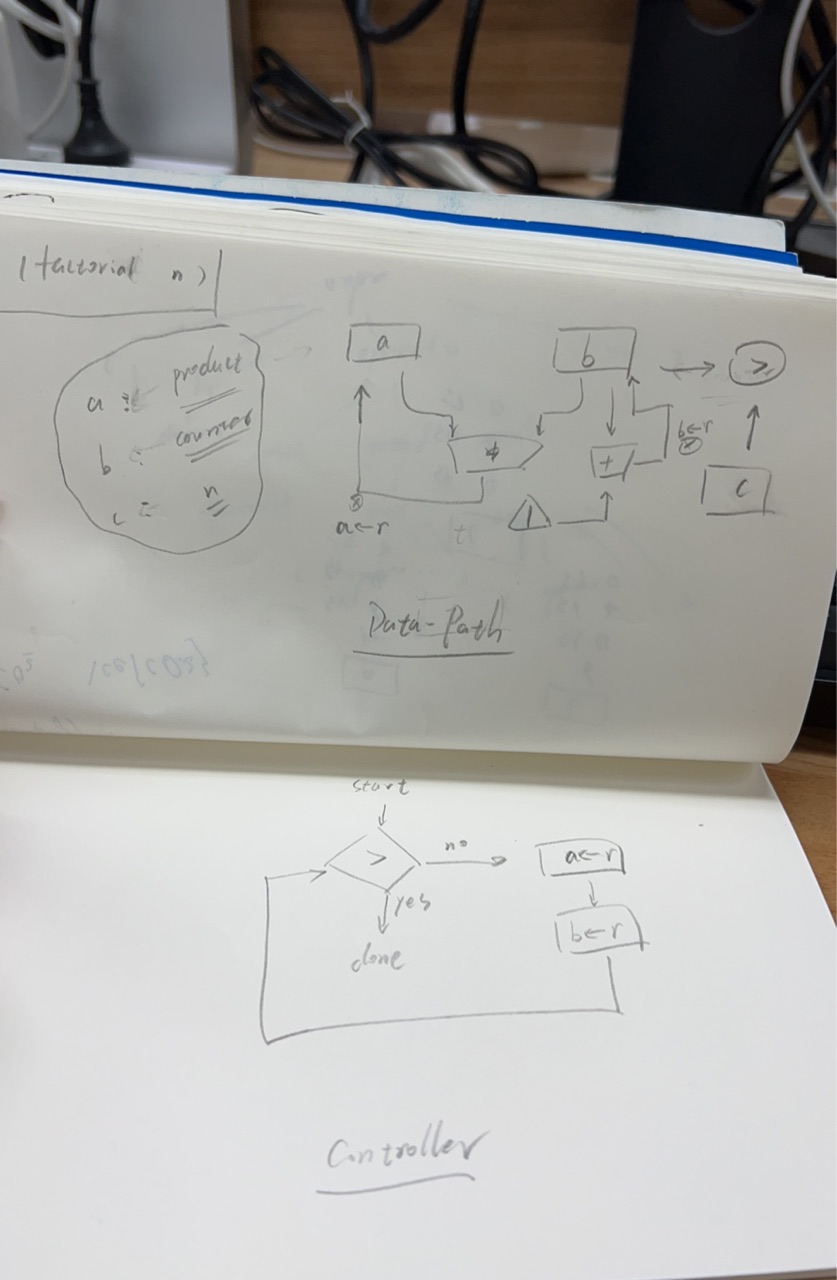 (factorial n)
a : product
b : counter
c : n
a
b
>
*
+
b←r
c
1
a←r
Data-Path
start
>
no
a←r
yes
b←r
done
Controller